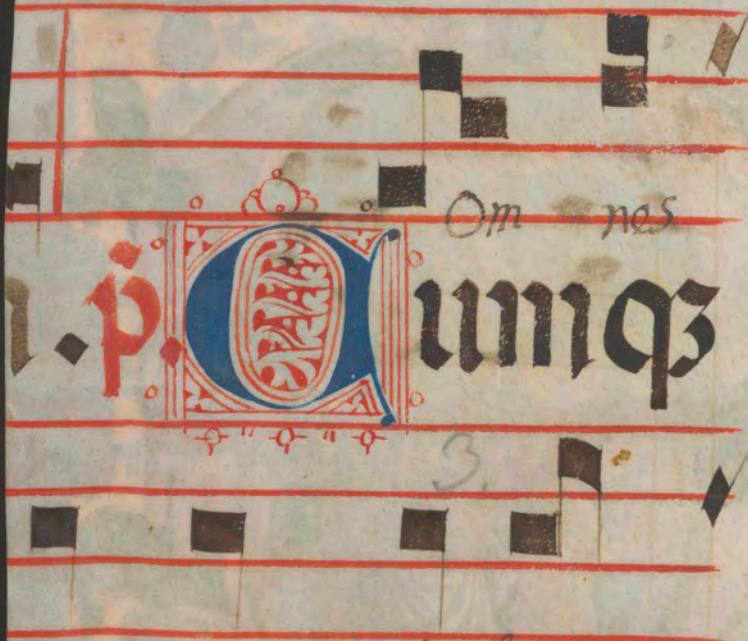 Om nes
. p̄. Cumqꝫ
3.